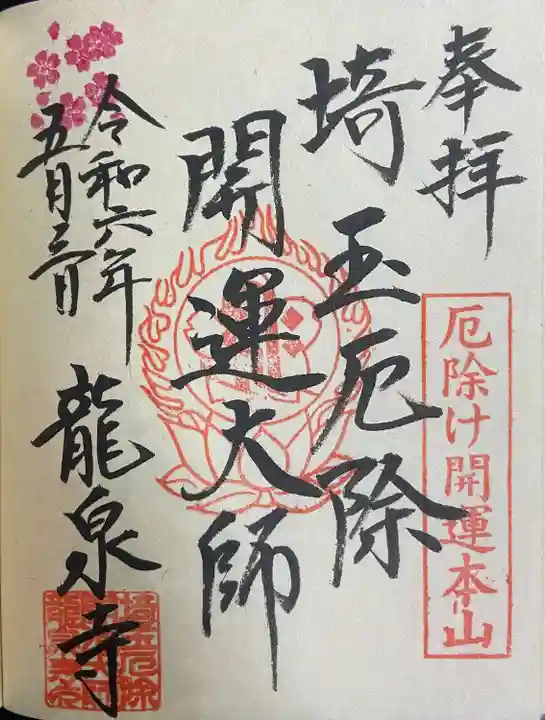 奉拝
厄除け開運本山
埼玉厄除
開運大師
令和六年
五月三日
龍泉寺